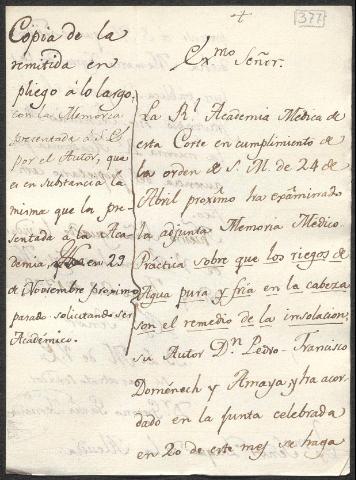 377
+
Copia de la
remitida en
pliego á lo largo.
con la Memoria
presentada á S. E.
por el Autor, que
es en substancia la
misma que la pre-
sentada á la Aca-
demia en 29
de Noviembre proximo
pasado solicitando ser
Académico.
Exmo. Señor.
La Rl. Academia Medica de
esta Corte en cumplimiento de
la orden de S. M. de 24 de
Abril proximo ha exâminado
la adjunta Memoria Medico-
Práctica sobre que los riegos de
Agua pura y fria en la cabeza
son el remedio de la insolacion,
su Autor Dn. Pedro Francisco
Doménech y Amaya, y ha acor-
dado en la junta celebrada
en 20 de este mes se haga